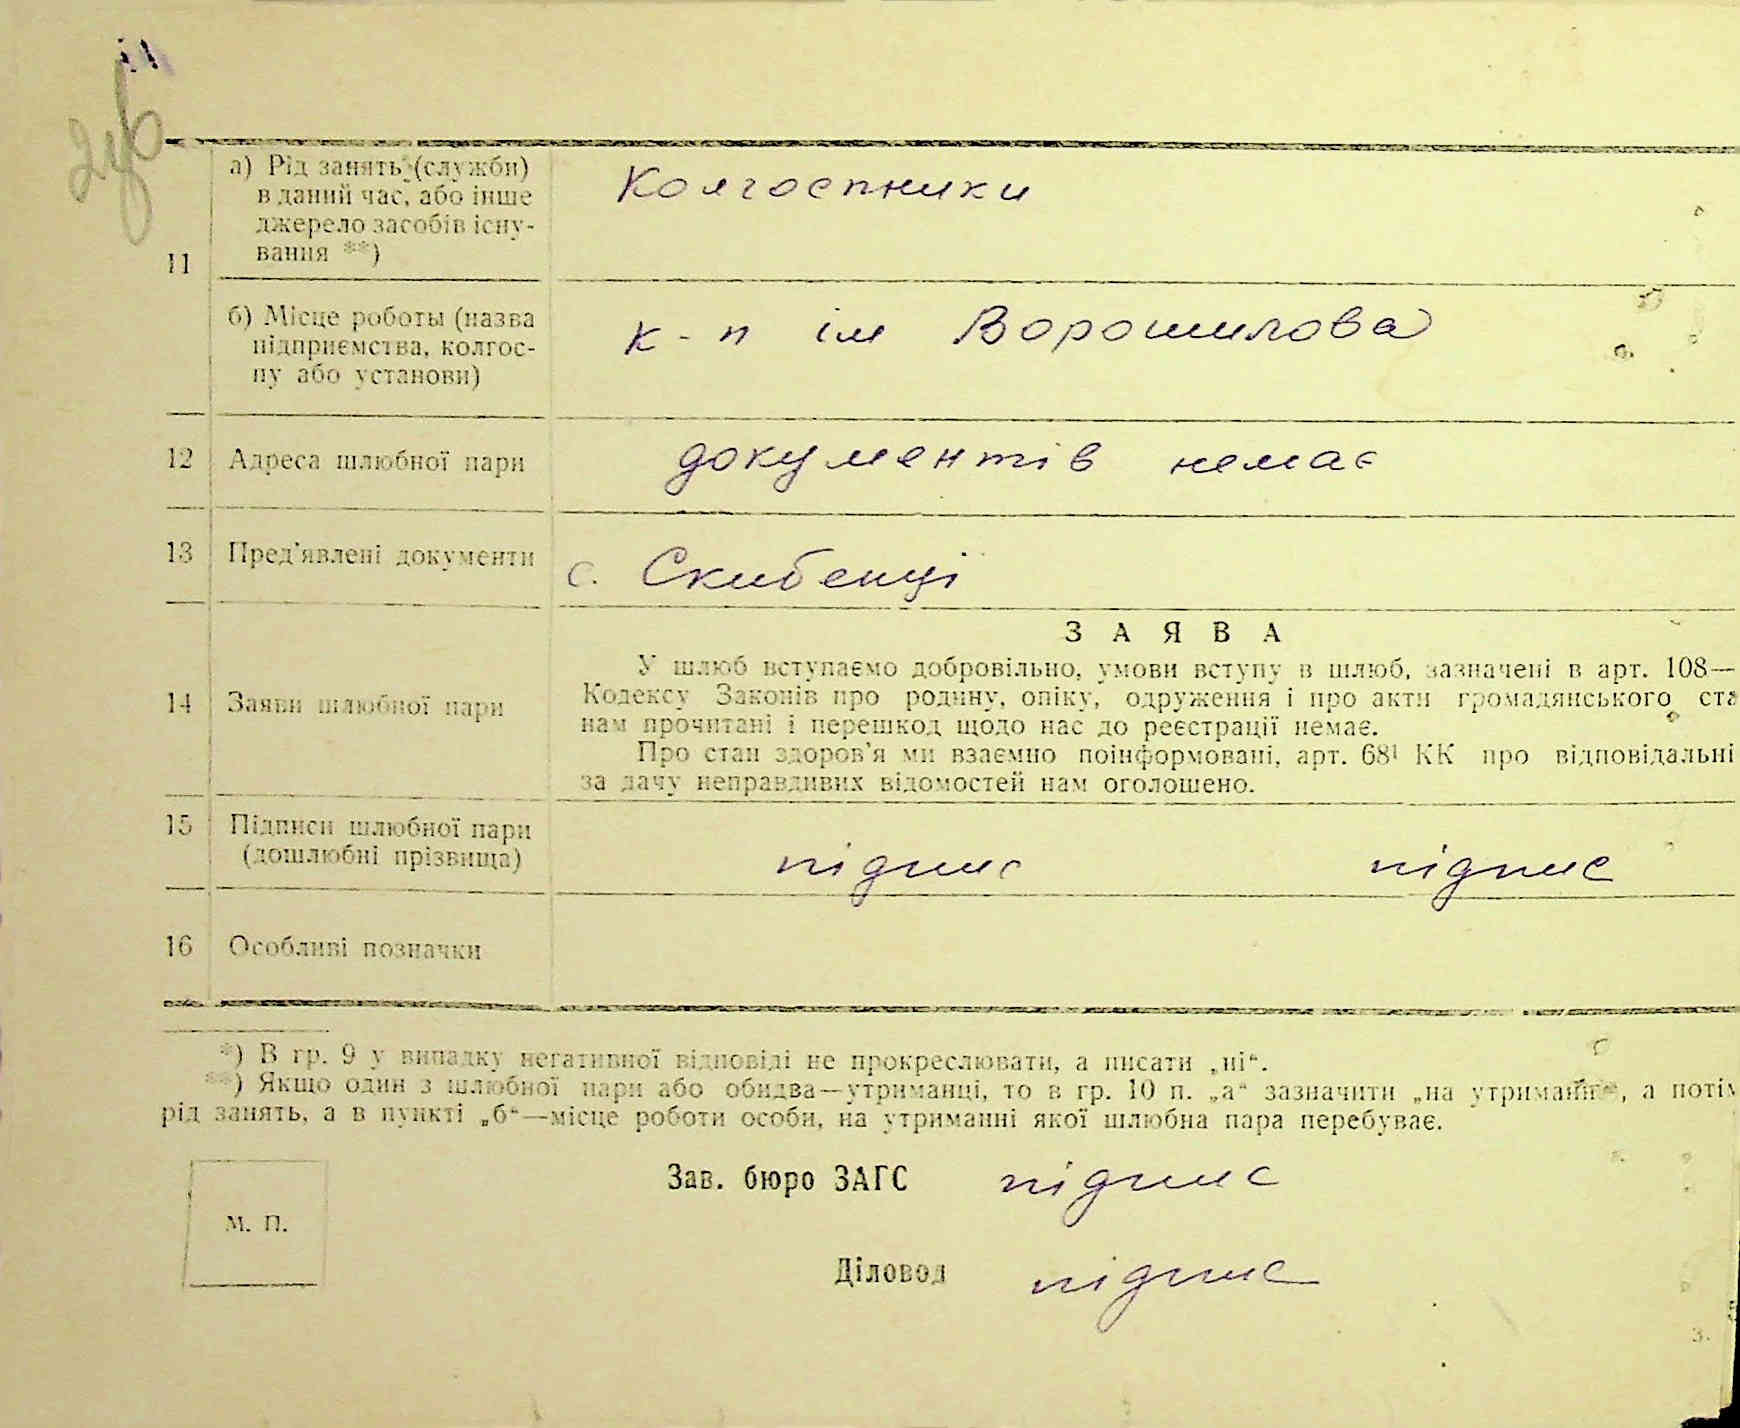 2зв
а) Рід занять (служби)
в даний час, або інше
джерело засобів існу-
вання **)
Колгоспники
11
б) Місце роботы (назва
підприємства, колгос-
пу або установи)
к-п ім Ворошилова
12 Адреса шлюбної пари
документів немає
13 Пред'явлені документи
с. Скибенці
З А Я В А
У шлюб вступаємо добровільно, умови вступу в шлюб, зазначені в арт. 108—
Кодексу Законів про родину, опіку, одруження і про акти громадянського ста
нам прочитані і перешкод щодо нас до реєстрації немає.
14 Заяви шлюбної пари
Про стан здоров'я ми взаємно поінформовані, арт. 68¹ КК про відповідальні
за дачу неправдивих відомостей нам оголошено.
15 Підписи шлюбної пари
(дошлюбні прізвища)
підпис підпис
16 Особливі позначки
*) В гр. 9 у випадку негативної відповіді не прокреслювати, а писати „ні“.
**) Якщо один з шлюбної пари або обидва—утриманці, то в гр. 10 п. „а“ зазначити „на утриманні“, а потім
рід занять, а в пункті „б“—місце роботи особи, на утриманні якої шлюбна пара перебуває.
Зав. бюро ЗАГС підпис
М. П.
Діловод підпис